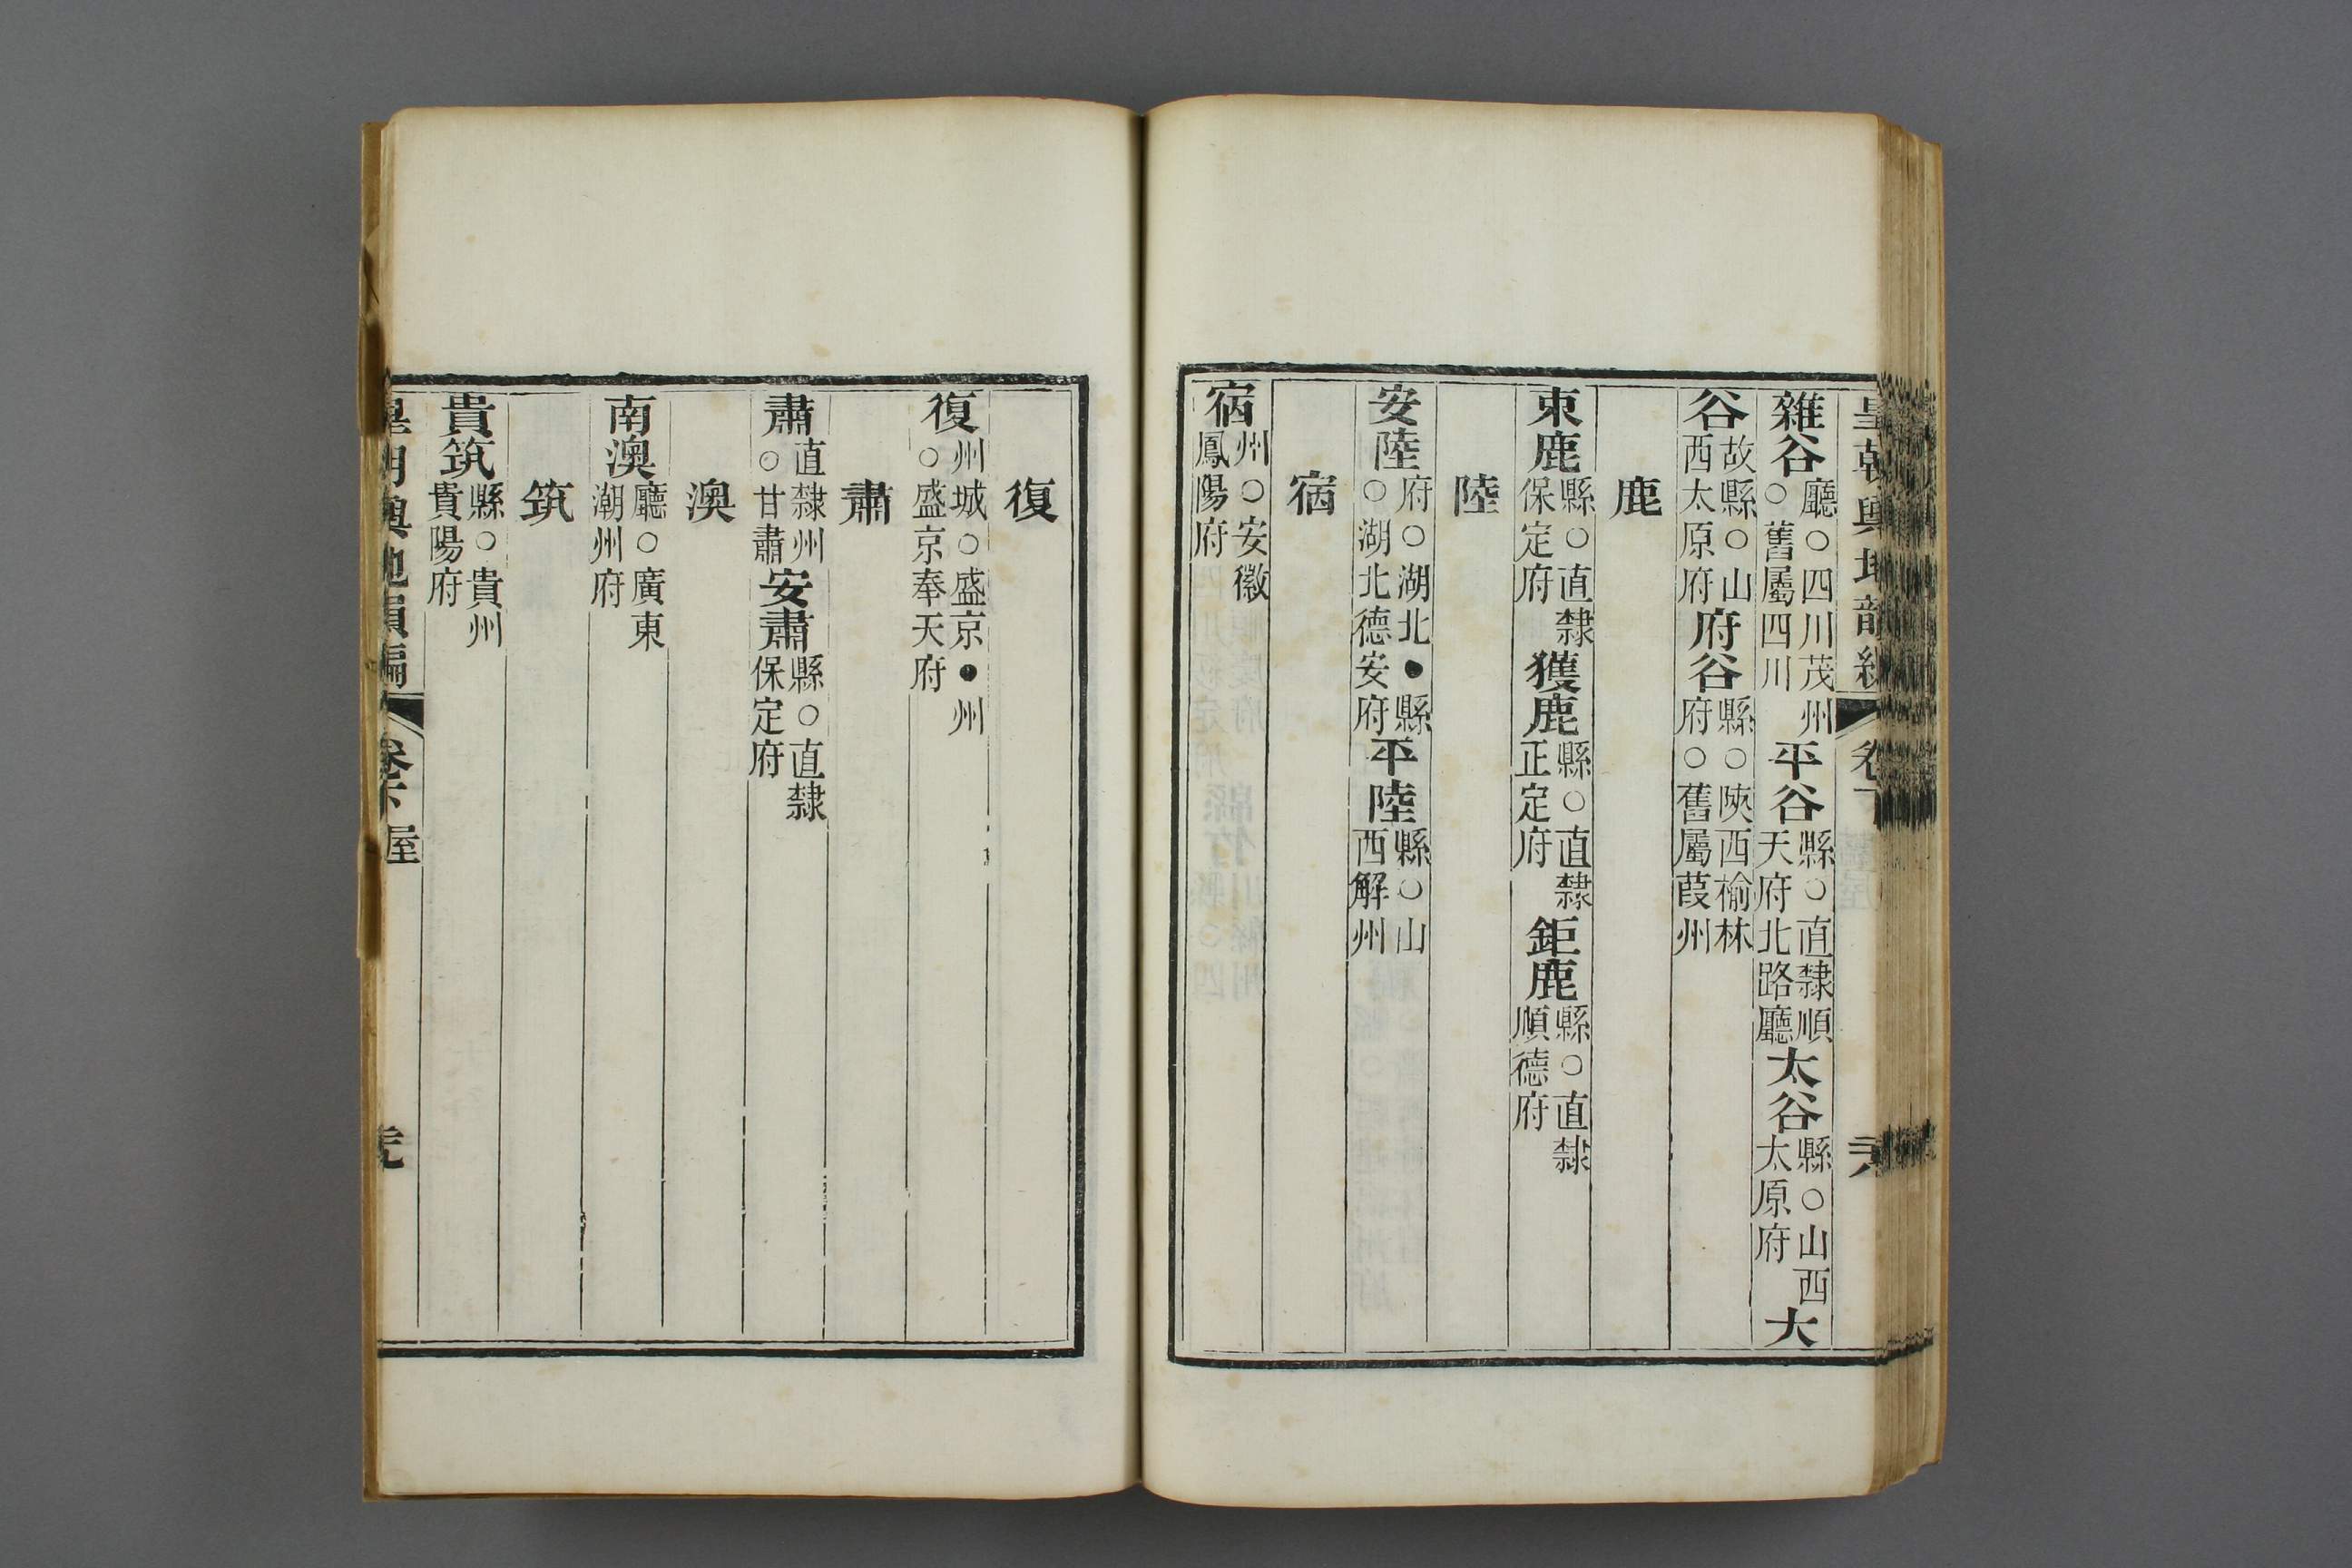 皇朝輿地韻編 卷下
雜谷廳○四川茂州○舊屬四川平谷縣○直隸順天府北路廳太谷縣○山西太原府大
谷故縣○山西太原府府谷縣○陝西榆林府○舊屬葭州
鹿
束鹿縣○直隸保定府獲鹿縣○直隸正定府鉅鹿縣○直隸順德府
陸
安陸府○湖北●縣○湖北德安府平陸縣○山西解州
宿
宿州○安徽鳳陽府
復
復州城○盛京●州○盛京奉天府
肅
肅直隸州○甘肅安肅縣○直隸保定府
澳
南澳廳○廣東潮州府
筑
貴筑縣○貴州貴陽府
皇朝輿地韻編 卷下 屋